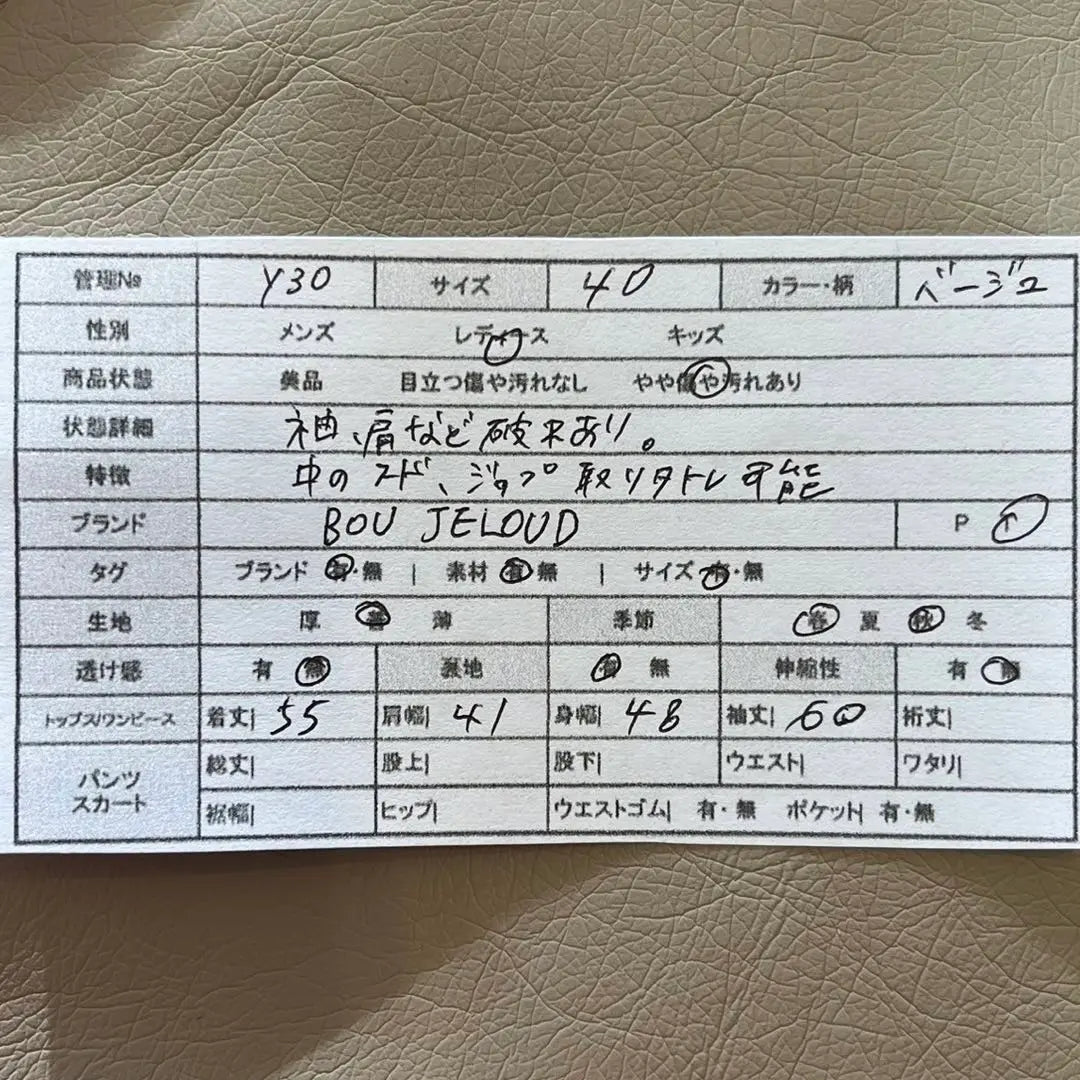 管理№ Y30 サイズ 40 カラー・柄 ベージュ
性別 メンズ レディース キッズ
商品状態 美品 目立つ傷や汚れなし やや傷や汚れあり
状態詳細 袖、肩など破れあり。
特徴 中のフード、ジップ取り外し可能
ブランド BOU JELOUD P ↑
タグ ブランド 有・無 | 素材 有・無 | サイズ 有・無
生地 厚 普 薄 季節 春 夏 秋 冬
透け感 有 無 裏地 有 無 伸縮性 有 無
トップス/ワンピース 着丈| 55 肩幅| 41 身幅| 48 袖丈| 60 裄丈|
パンツ スカート
総丈| 股上| 股下| ウエスト| ワタリ|
裾幅| ヒップ| ウエストゴム| 有・無 ポケット| 有・無